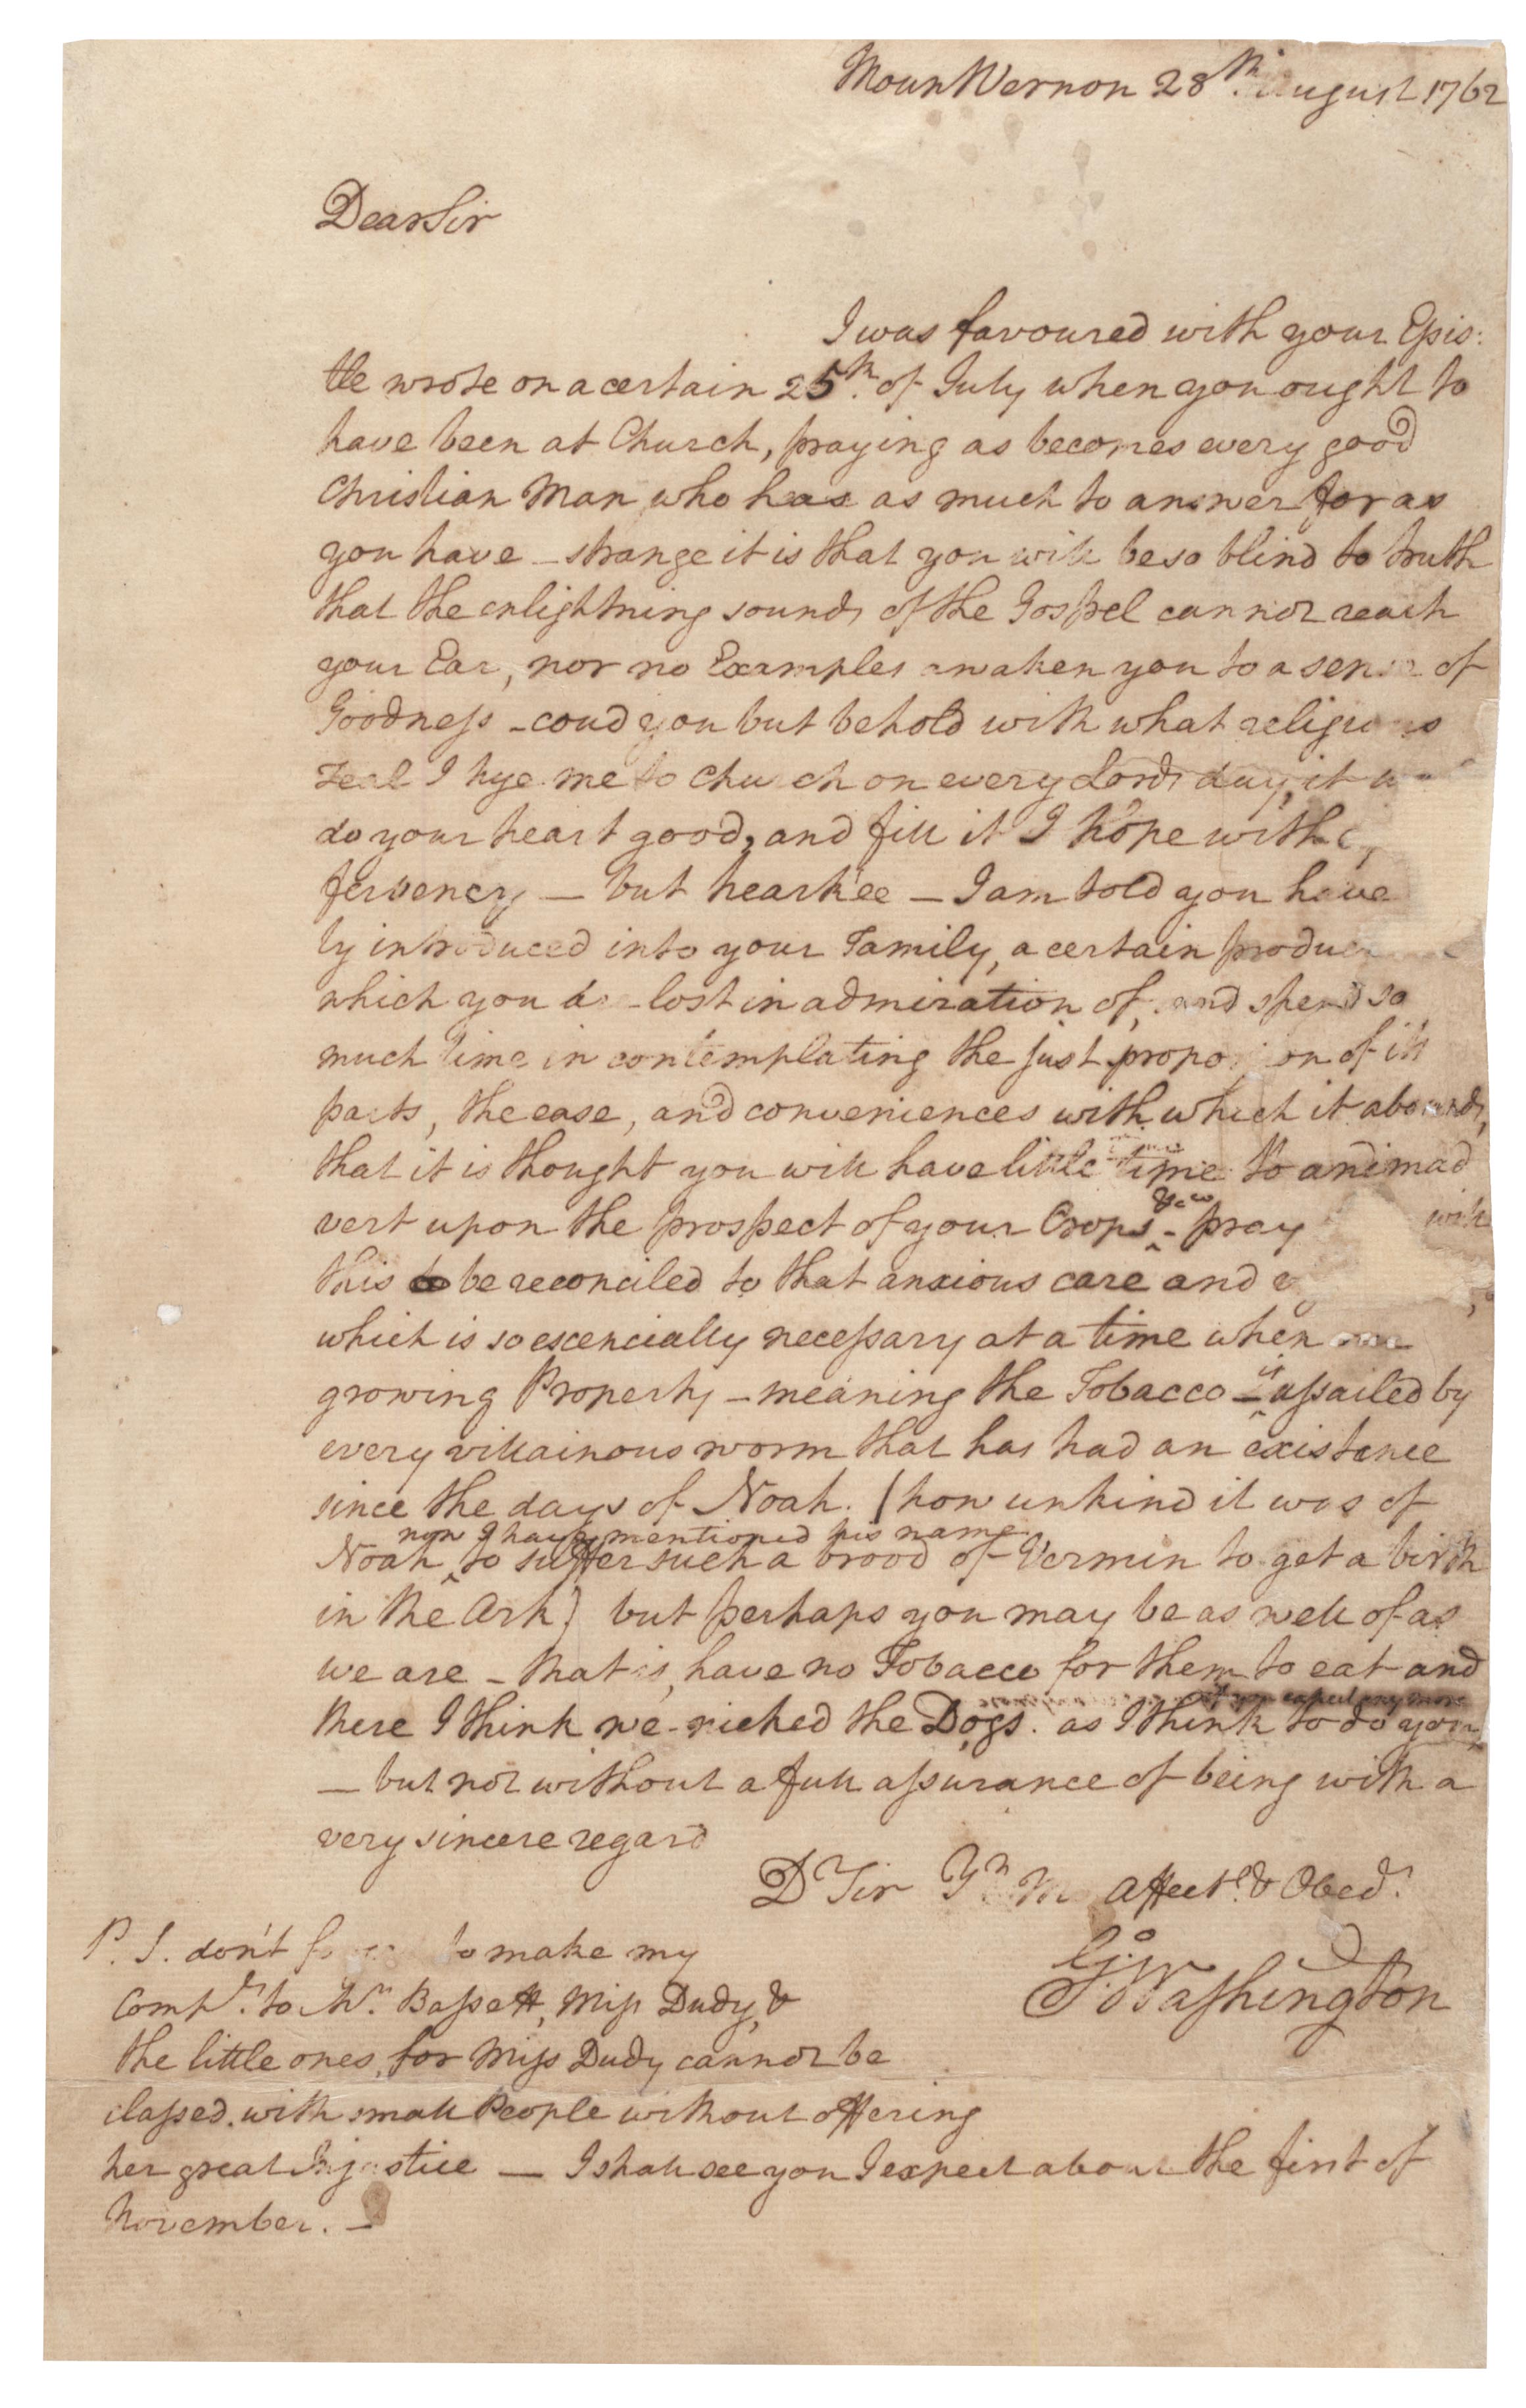 Mount Vernon 28th August 1762
Dear Sir
I was favoured with your Epis:
tle wrote on a certain 25th of July when you ought to
have been at Church, praying as becomes every good
Christian Man who has as much to answer for as
you have — strange it is that you will be so blind to truth
that the enlightning sounds of the Gospel cannot reach
your Ear, nor no Examples awaken you to a sense of
Goodness — coud you but behold with what religious
zeal I hye me to Church on every Lords day, it
do your heart good, and fill it I hope with
fervency — but hearkee — I am told you have
ly introduced into your Family, a certain
which you are lost in admiration of, and spend so
much time in contemplating the just proportion of its
parts, the ease, and conveniences with which it abounds,
that it is thought you will have little time to animad
vert upon the prospect of your Crops &ca — pray
this to be reconciled to that anxious care and
which is so escencially necessary at a time when our
growing Property — meaning the Tobacco — is assailed by
every villainous worm that has had an existence
since the days of Noah. (how unkind it was of
Noah now I have mentioned his name to suffer such a brood of Vermin to get a birth
in the Ark) but perhaps you may be as well of as
we are — that is, have no Tobacco for them to eat and
there I think we nicked the Dogs. as I think to do you if you expect any more
— but not without a full assurance of being with a
very sincere regard
Dr Sir Yr Mo Affecte & Obedt
Go: Washington
P.S. don't forget to make my
Compts. to Mrs. Bassett, Miss Dudy, &
the little ones, for Miss Dudy cannot be
classed with small People without offering
her great Injustice — I shall see you I expect about the first of
November. —